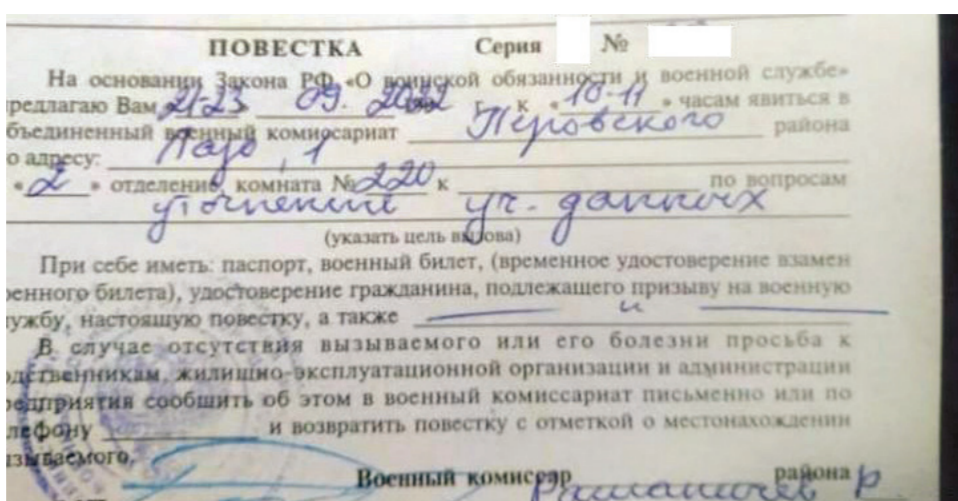 ПОВЕСТКА Серия №
На основании Закона РФ «О воинской обязанности и военной службе»
редлагаю Вам 21-23 09. 2022 г. к «10-11» часам явиться в
бъединенный военный комиссариат Перовского района
о адресу: Лазо, 1
«2» отделение, комната № 220 к по вопросам
уточнений уч. данных
(указать цель вызова)
При себе иметь: паспорт, военный билет, (временное удостоверение взамен
оенного билета), удостоверение гражданина, подлежащего призыву на военную
ужбу, настоящую повестку, а также
В случае отсутствия вызываемого или его болезни просьба к
одственникам, жилищно-эксплуатационной организации и администрации
редприятия сообщить об этом в военный комиссариат письменно или по
лефону и возвратить повестку с отметкой о местонахождении
ызываемого.
Военный комиссар района